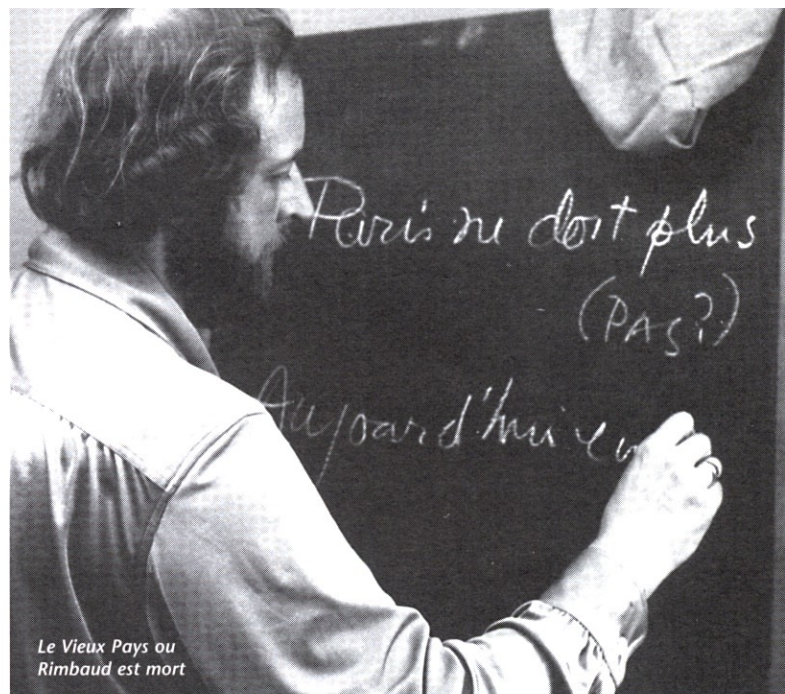 Paris ne dort plus
(PAS?)
Aujourd'hui en
Le Vieux Pays ou
Rimbaud est mort